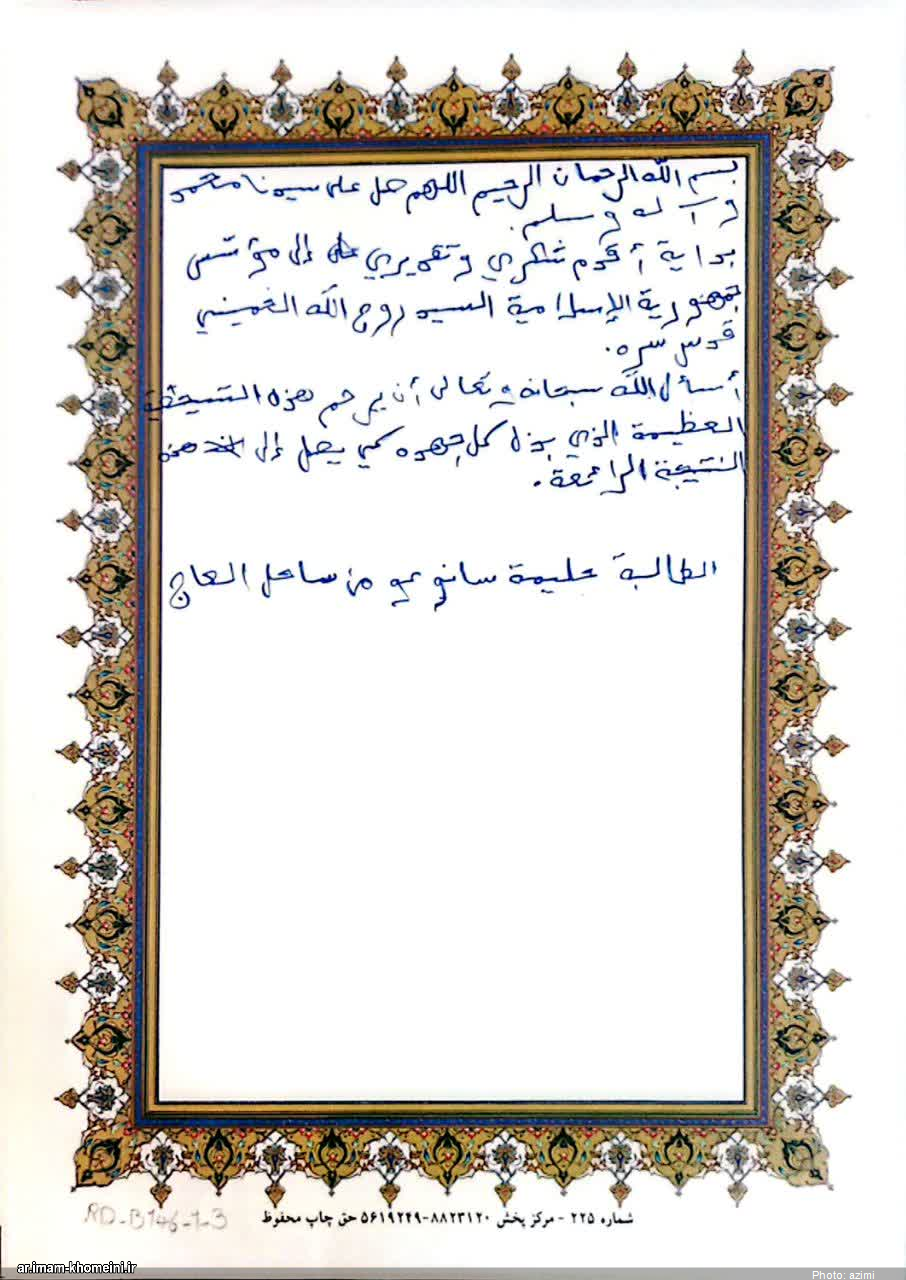 بسم الله الرحمان الرحيم اللهم صل على سيدنا محمد
و آله وسلم.
بداية أقدم شكري وتقديري إلى مؤسس
جمهورية الإسلامية السيد روح الله الخميني
قدس سره.
أسأل الله سبحانه وتعالى أن يرحم هذه الشخصية
العظيمة الذي بذل كل جهوده كي يصل إلى هذه
النتيجة الرائعة.
الطالبة حليمة سانوغو من ساحل العاج
شماره ۲۲۵ - مرکز پخش ۸۸۲۳۱۲۰-۵۶۱۹۲۴۹ حق چاپ محفوظ
RD-B146-1-3
ar.imam-khomeini.ir
Photo: azimi